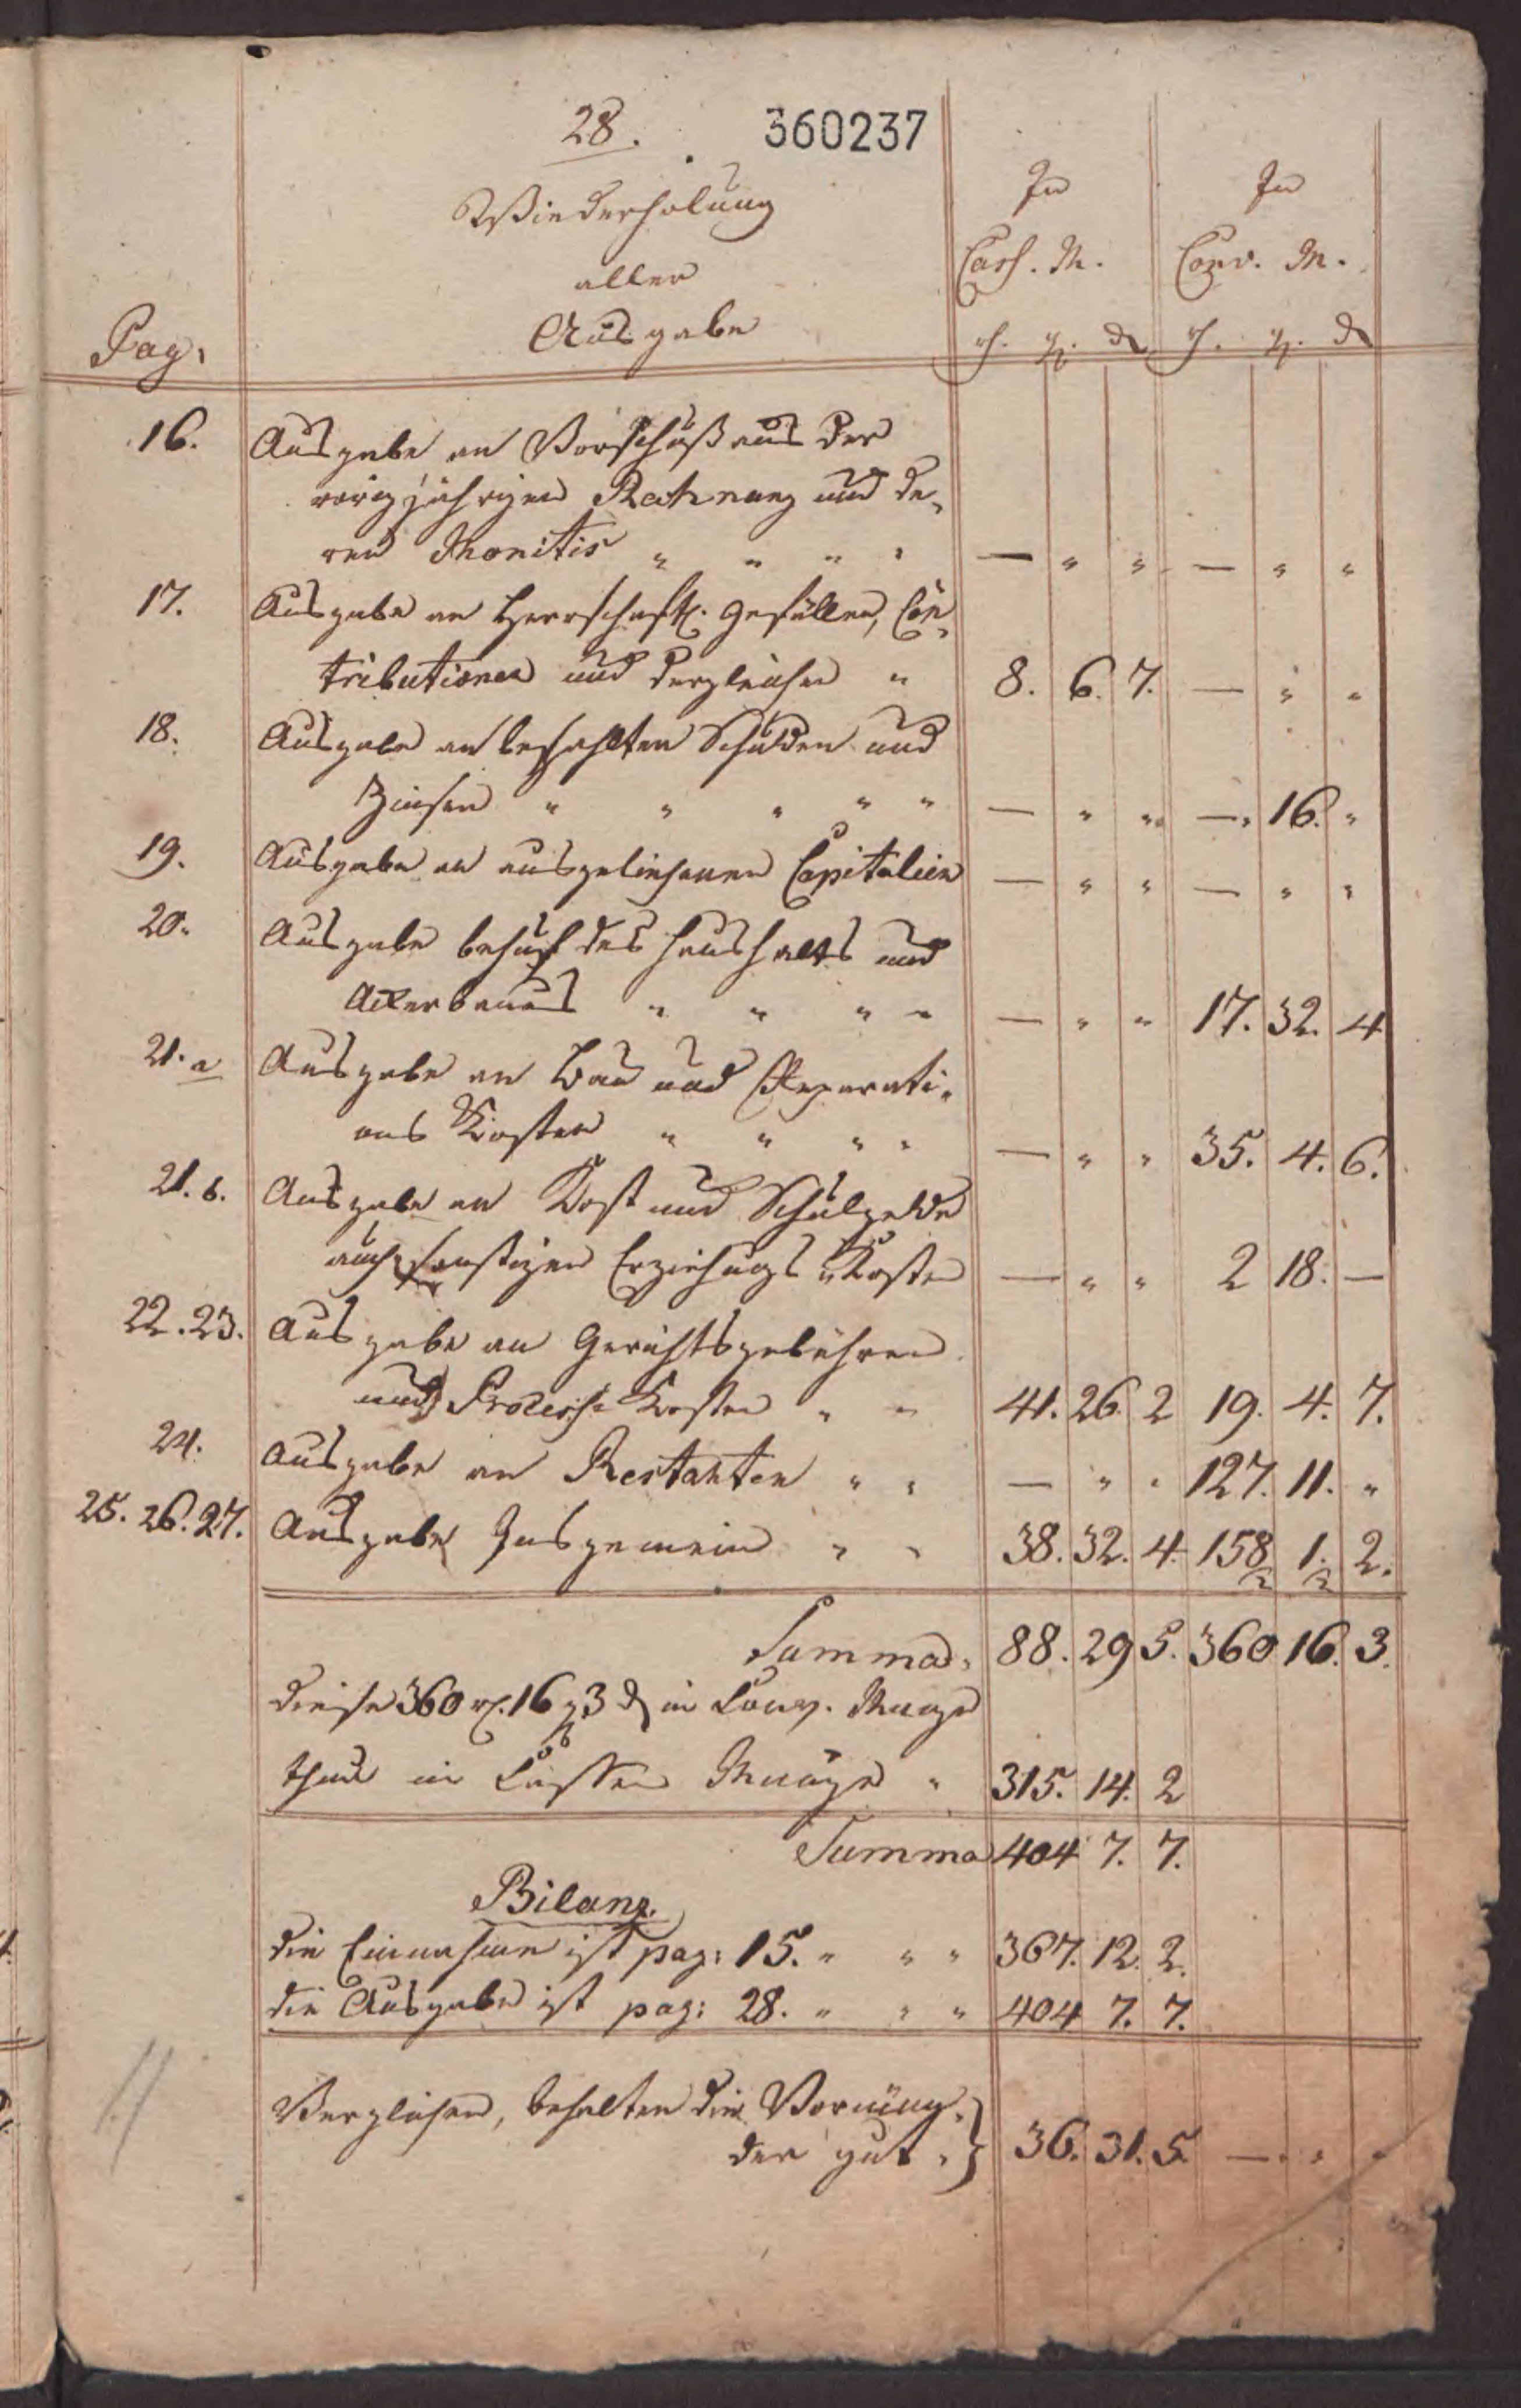 28. 360237
Wiederholung
aller
Ausgabe
In
Cass. M.
In
Conv. M.
Pag. rh. gl. d rh. gl. d
16. Ausgabe an Vorschuß aus der
vorig jährigen Rechnung und de-
ren Monitis " " " " — " " — " "
17. Ausgabe an Herrschaftl. Gefällen, Con-
tributionen und dergleichen " 8. 6. 7. — " "
18. Ausgabe an bezahlten Schulden und
Zinsen " " " " " — " " — 16. "
19. Ausgabe an ausgeliehenen Capitalien — " " — " "
20. Ausgabe behuf des Haushalts und
Ackerbaues " " " " — " " 17. 32. 4
21. a Ausgabe an Bau und Reparati-
ons Kosten " " " " — " " 35. 4. 6.
21. b. Ausgabe an Kost und Schulgelde
auch sonstigen Erziehungs Kosten — " " 2 18. —
22. 23. Ausgabe an Gerichtsgebühren
und Process Kosten " " 41. 26. 2 19. 4. 7.
24. Ausgabe an Restanten " " — " " 127. 11. "
25. 26. 27. Ausgabe Insgemein " " 38. 32. 4. 158 1. 2.
Summa 88. 29 5. 360 16. 3.
diese 360 rh. 16 gl 3 d in Conv. Münze
thun in Cassen Münze " 315. 14. 2
Summa 404 7. 7.
Bilanz.
die Einnahme ist pag: 15. " " " 367. 12. 2.
die Ausgabe ist pag: 28. " " " 404 7. 7.
Verglichen, behalten die Vormün-
der gut " } 36. 31. 5. — " "